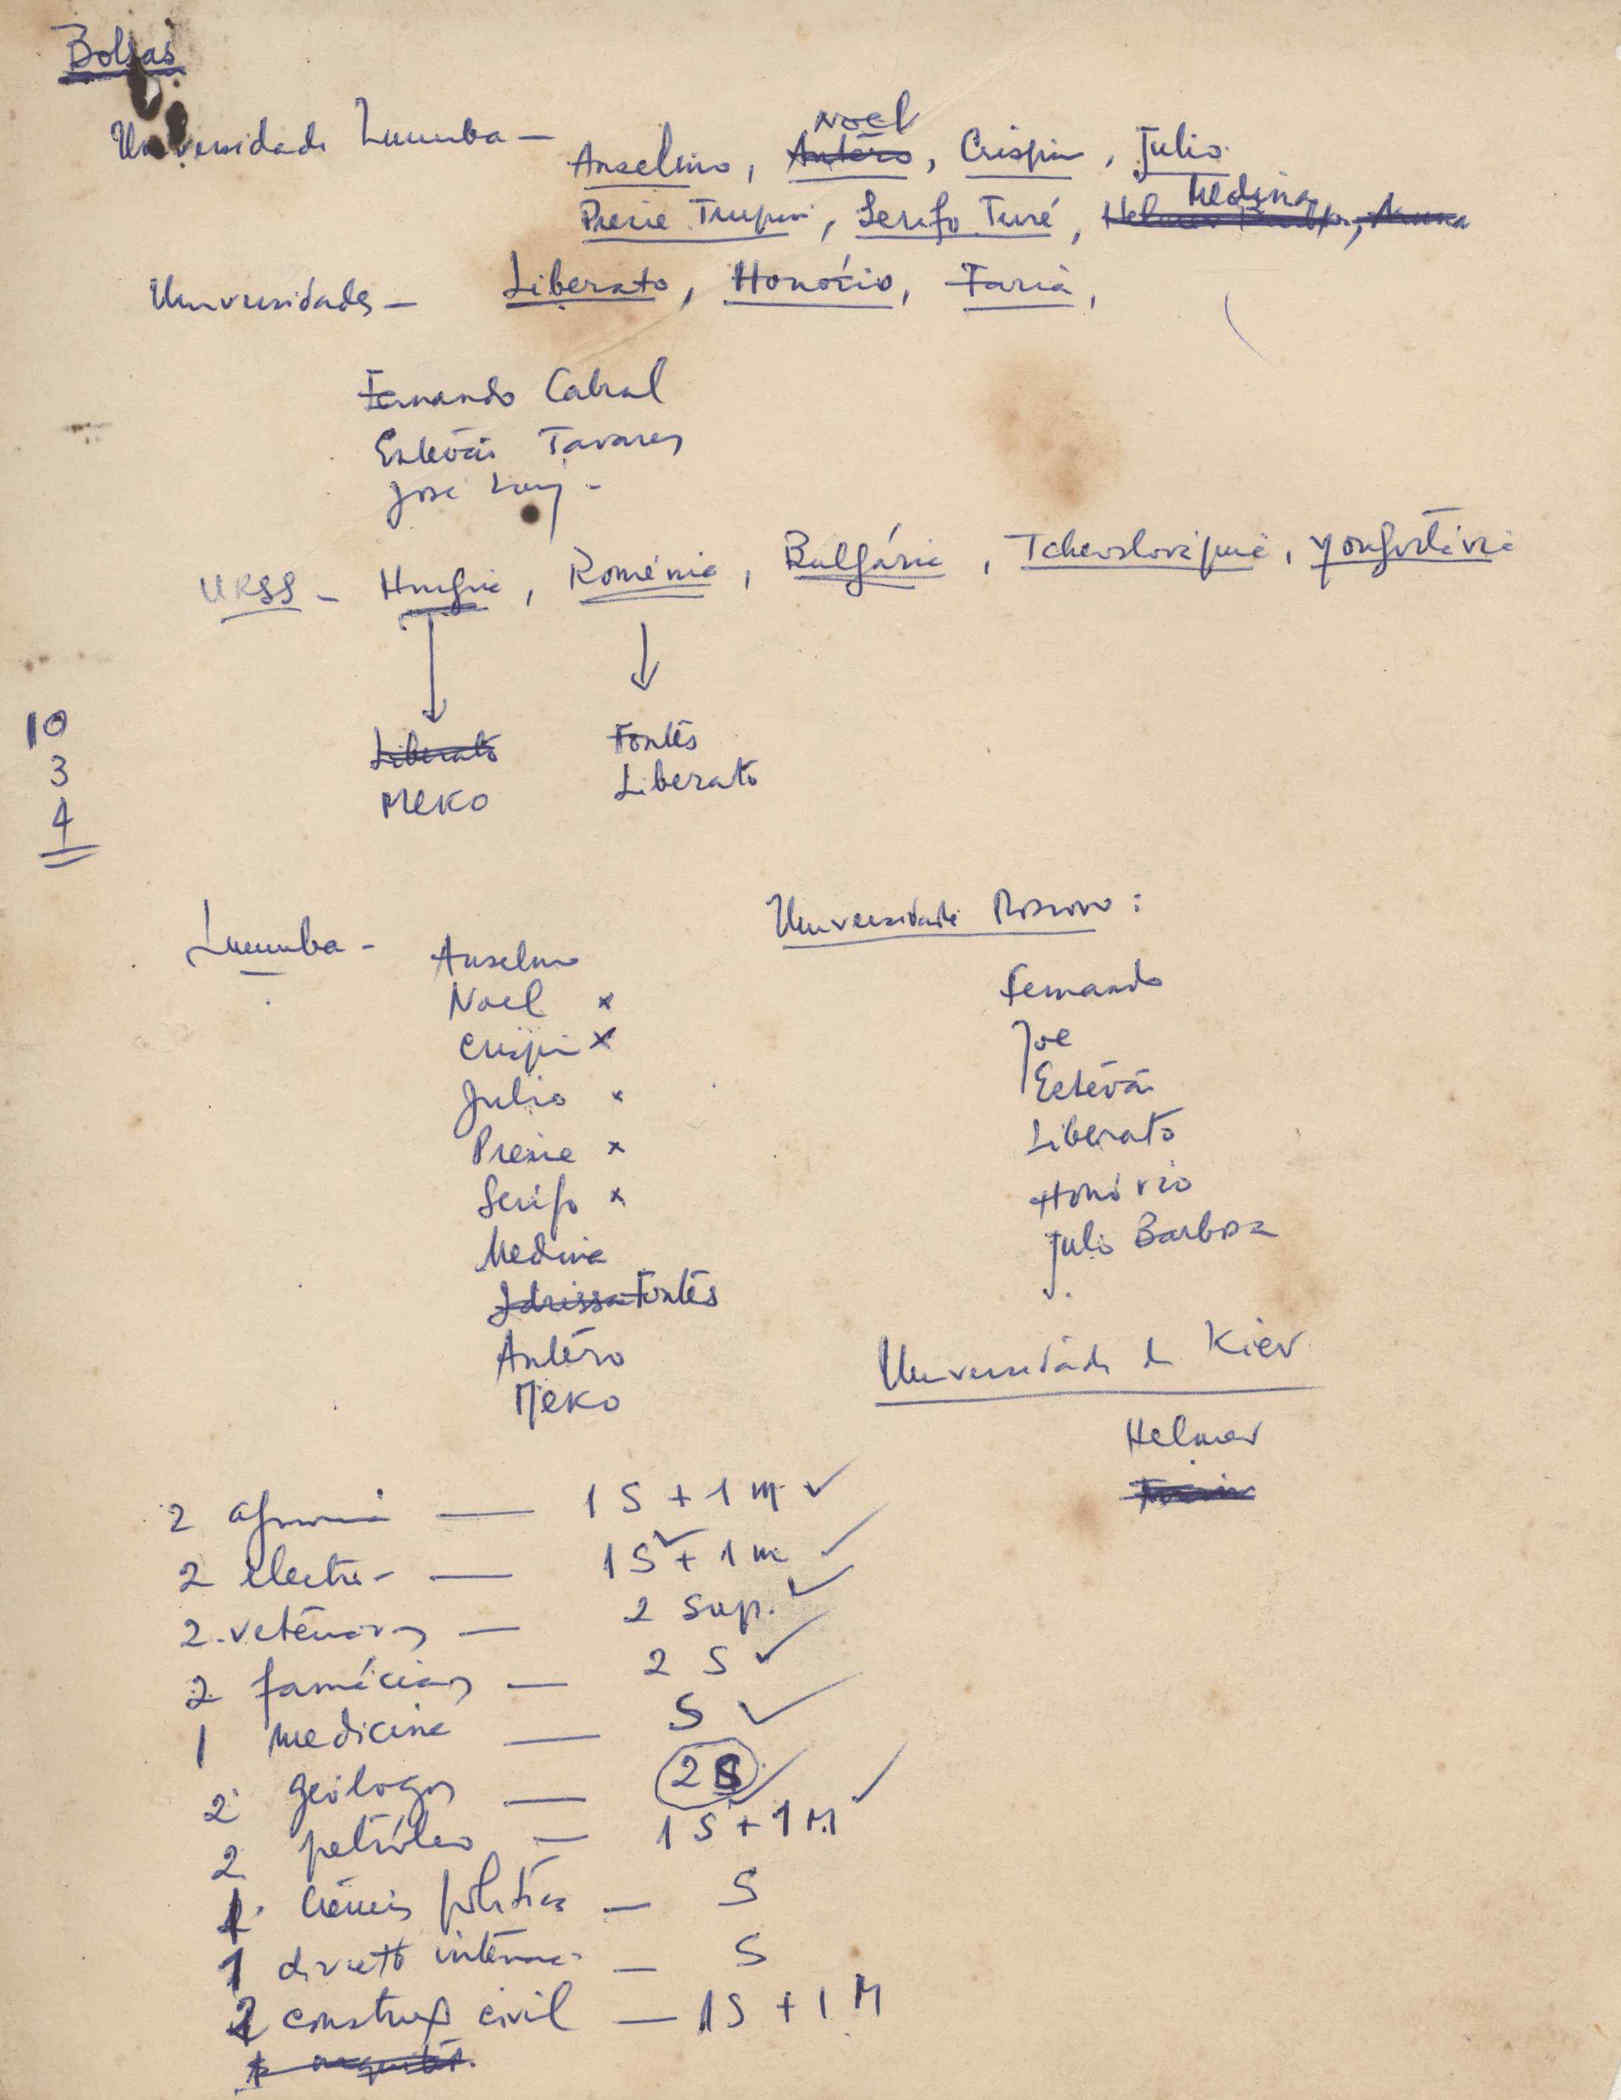 Bolsas
Universidade Lumumba — Anselmo, Noel, Crispin, Julio
Antero
Medina
Pierre, Serifo Turé, Helmer
Universidades — Liberato, Honório, Faria,
Fernando Cabral
Estevão Tavares
José Luiz -
URSS - Hungria, Roménia, Bulgária, Tchecoslováquia, Yougoslávia
Liberato
Meko
Fontes
Liberato
10
3
4
Lumumba -
Anselmo
Noel x
Crispin x
Julio x
Pierre x
Serifo x
Medina
Idrissa Fontes
Antéro
Meko
Universidade Moscovo :
Fernando
Joe
Estevão
Liberato
Honório
Julio Barbosa
Universidade de Kiev
Helmer
2 agronomia — 1 S + 1 M ✓
2 electro - — 1 S ✓ + 1 m ✓
2 veterinários — 2 sup. ✓
2 farmácias — 2 S ✓
1 medicina — S ✓
2 geólogos — 2 S ✓
2 petróleo — 1 S + 1 M ✓
1 ciências políticas — S
1 direito internac. — S
2 construç civil — 1 S + 1 M
1 arquitet.